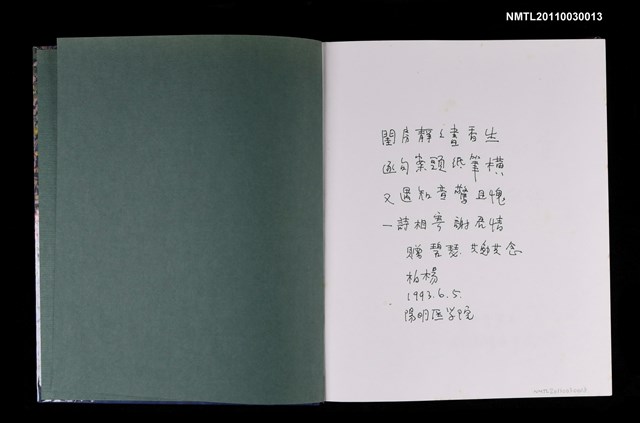 NMTL20110030013
閨房靜々書香生
逐句案頭紙筆橫
又遇知音驚且愧
一詩相寄謝君情
贈碧瑟 艾念
柏楊
1993.6.5.
陽明医学院
NMTL20110030013